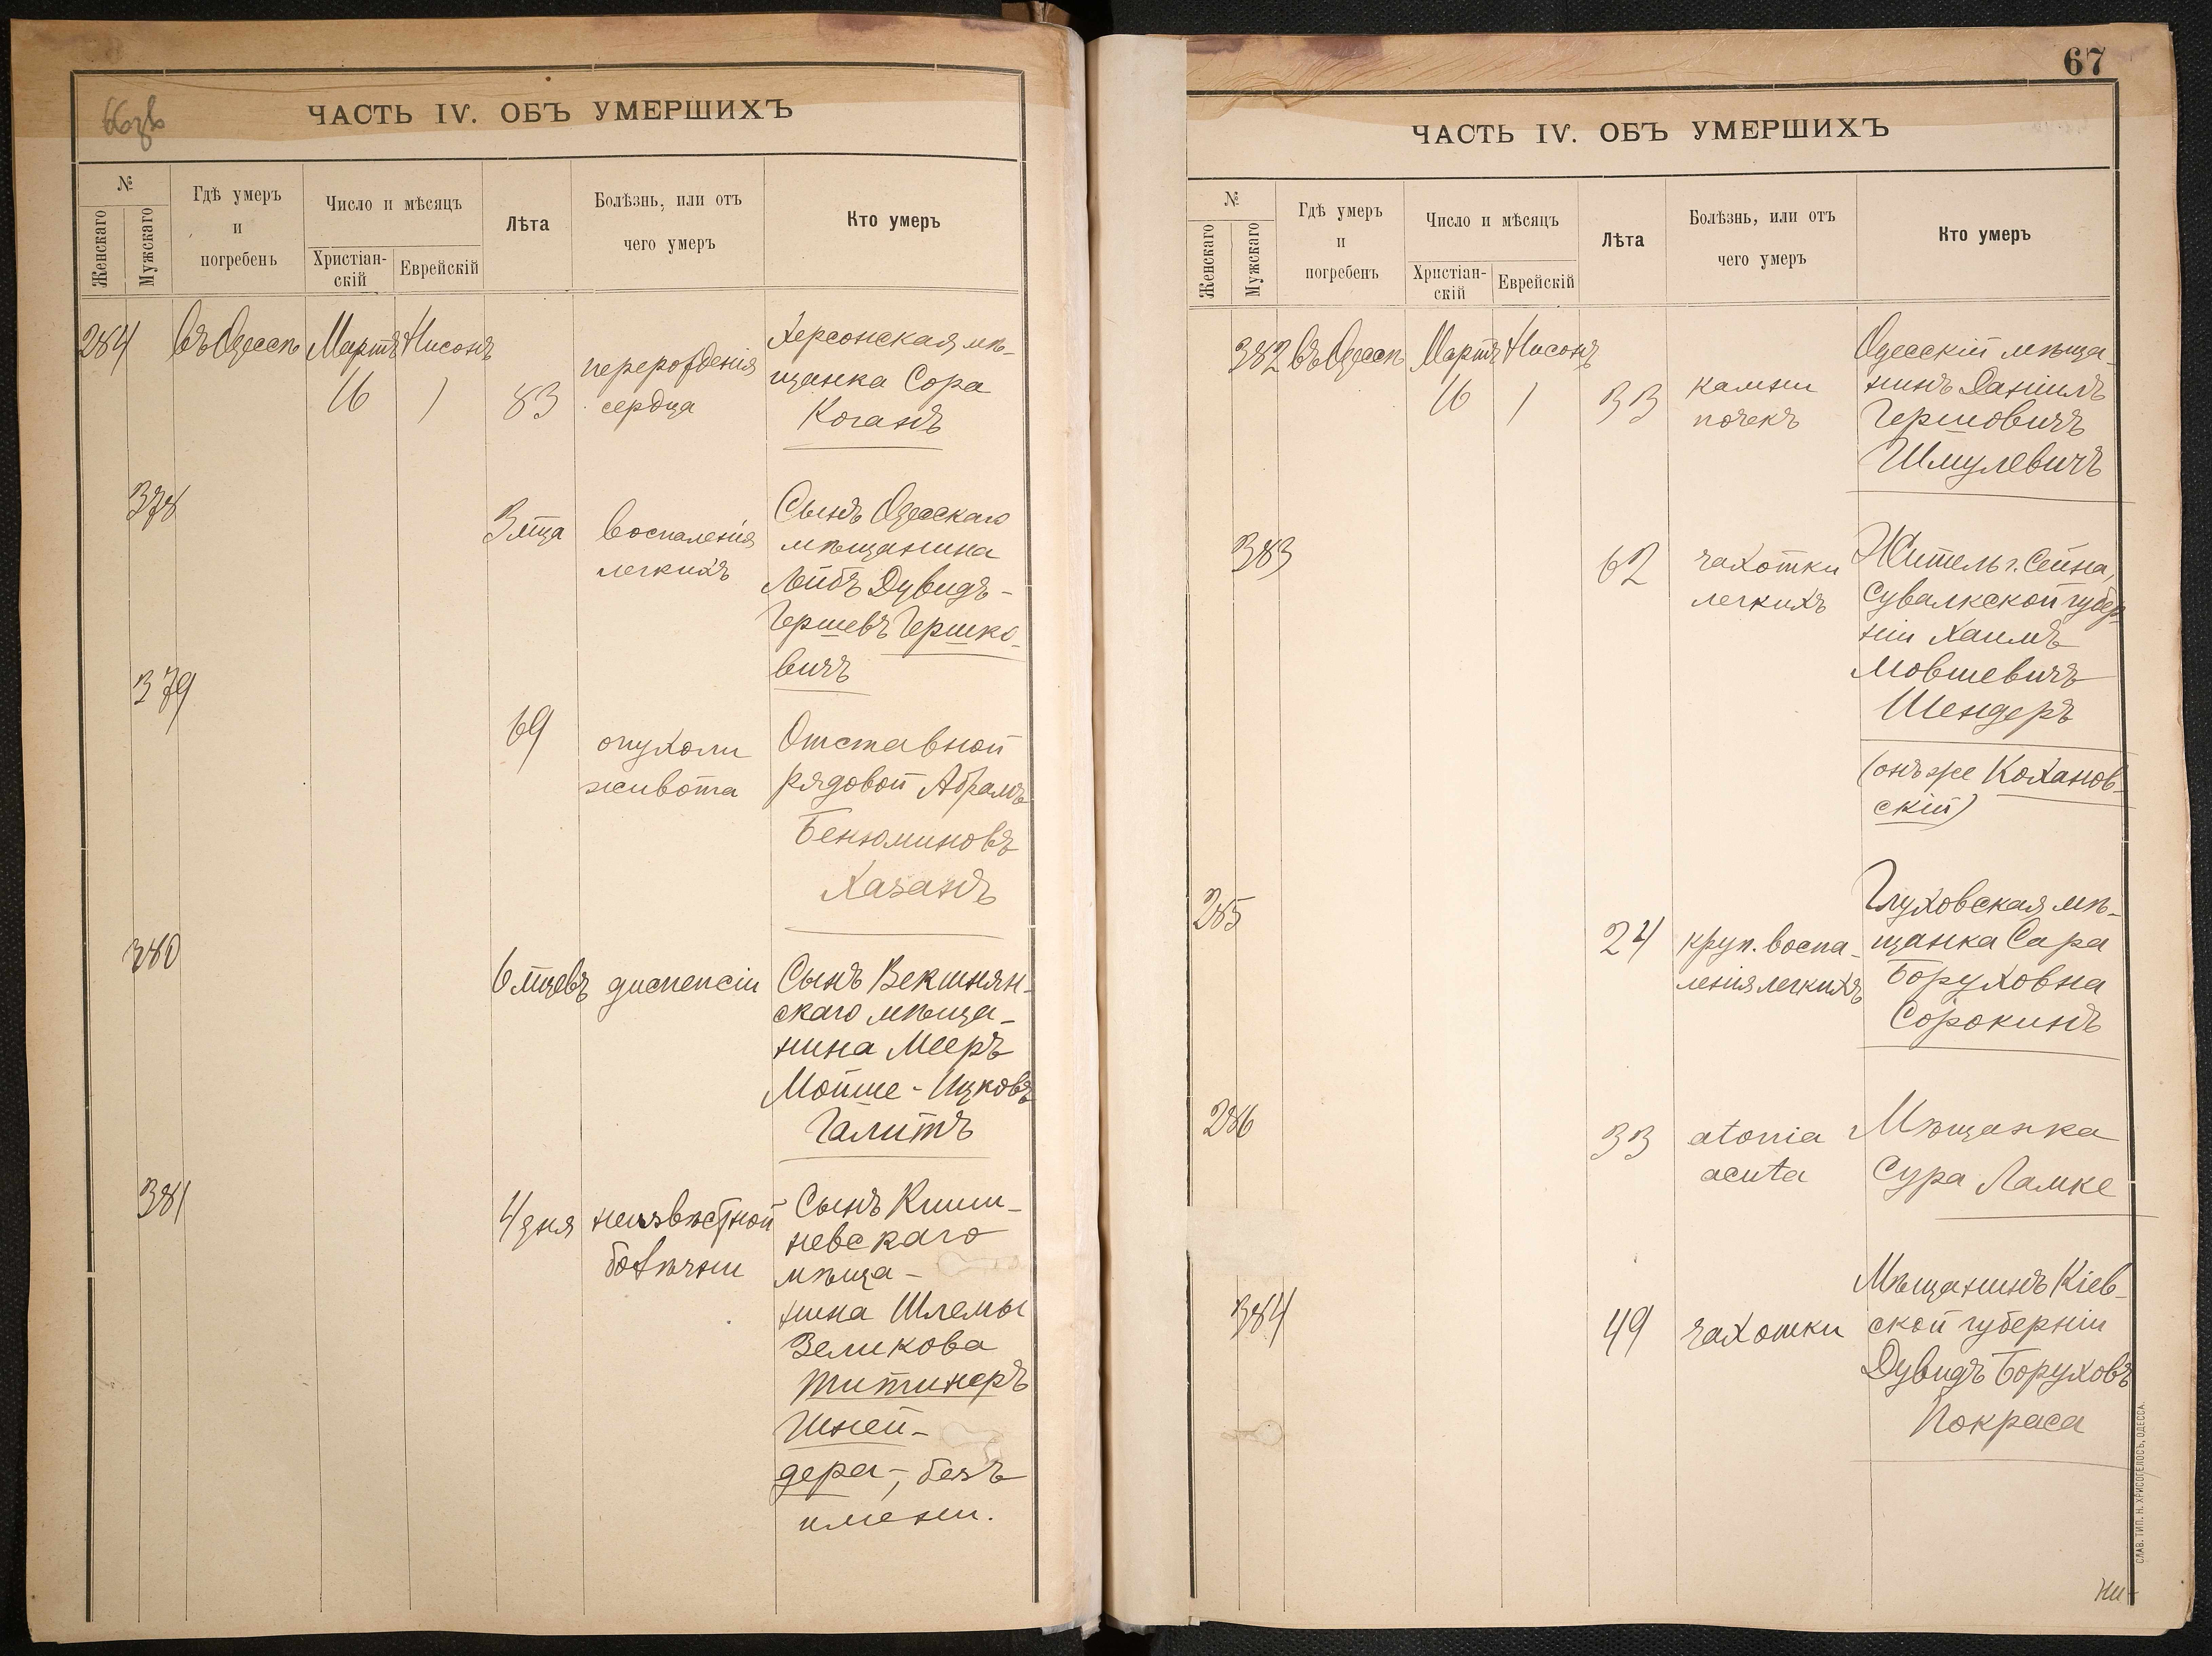 66об
ЧАСТЬ IV. ОБЪ УМЕРШИХЪ
№
Женскаго
Мужскаго
Гдѣ умеръ
и
погребенъ
Число и мѣсяцъ
Христіан-
скій
Еврейскій
Лѣта
Болѣзнь, или отъ
чего умеръ
Кто умеръ
284 въ Одессѣ Мартъ Нисонъ
16 1 83
перерожденія
сердца
Херсонская мѣ-
щанка Сора
Коганъ
378
3 м̃ца
воспаленія
легкихъ
Сынъ Одесскаго
мѣщанина
Лейбъ Дувидъ-
Гершевъ Гершко-
вичъ
379
69
опухоли
живота
Отставной
рядовой Абрамъ
Бенюминовъ
Хазанъ
380
6 м̃цевъ диспепсіи
Сынъ Векшнян-
скаго мѣща-
нина Мееръ
Мойше-Ицковъ
Галитъ
381
4 дня неизвѣстной
болѣзни
Сынъ Киши-
невскаго
мѣща-
нина Шлемы
Зеликова
Титинеръ
Шней-
дера-, безъ
имени.
67
ЧАСТЬ IV. ОБЪ УМЕРШИХЪ
№
Женскаго
Мужскаго
Гдѣ умеръ
и
погребенъ
Число и мѣсяцъ
Христіан-
скій
Еврейскій
Лѣта
Болѣзнь, или отъ
чего умеръ
Кто умеръ
382 въ Одессѣ Мартъ Нисонъ
16 1 33
камни
почекъ
Одесскій мѣща-
нинъ Даніилъ
Гершовичъ
Шмулевичъ
383
62
чахотки
легкихъ
Житель г. Сейна,
Сувалкской губер-
ніи Хаимъ
Мовшевичъ
Шендеръ
(онъ же Коханов-
скій)
285
24
круп. воспа-
ленія легкихъ
Глуховская мѣ-
щанка Сара
Боруховна
Сорокинъ
286
33
atonia
acuta
Мѣщанка
Сура Ламке
384
49
чахотки
Мѣщанинъ Кіев-
ской губерніи
Дувидъ Боруховъ
Покраса
СЛАВ. ТИП. Н. ХРИСОГЕЛОСЪ, ОДЕССА.
Ни-